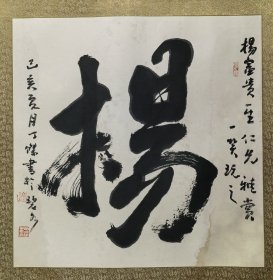 楊富貴一生仁兄雅賞
一笑玩之
楊
己亥夏月丁蝶書於